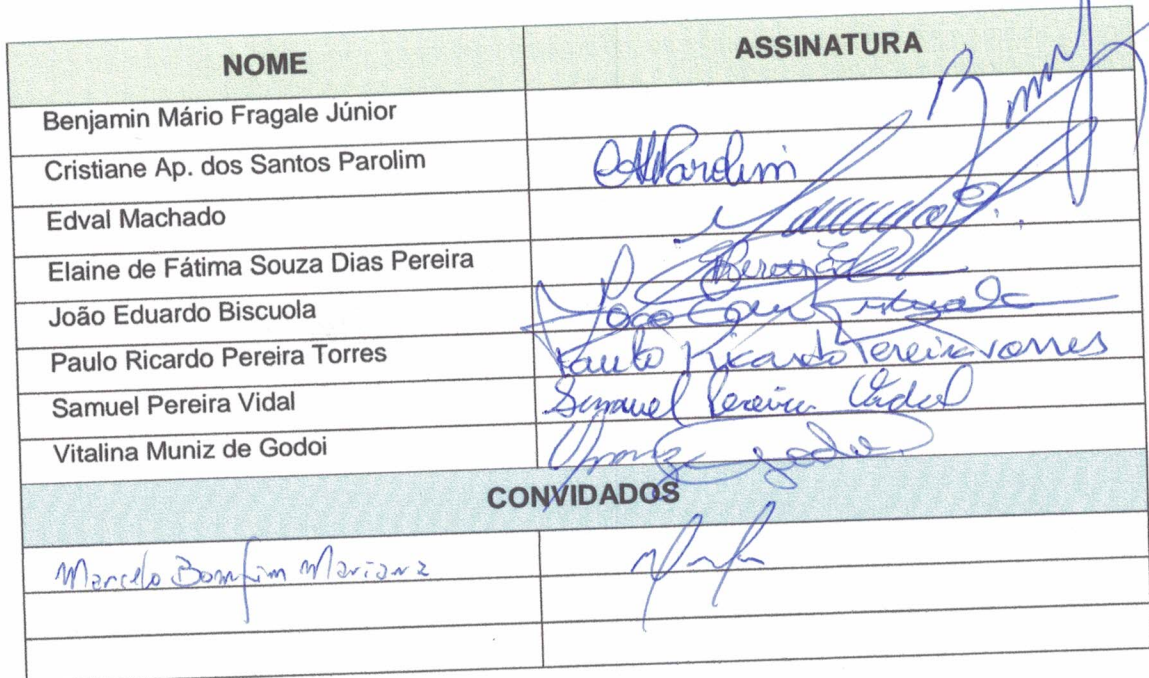 NOME ASSINATURA
Benjamin Mário Fragale Júnior
Cristiane Ap. dos Santos Parolim Parolim
Edval Machado
Elaine de Fátima Souza Dias Pereira
João Eduardo Biscuola João
Paulo Ricardo Pereira Torres Paulo Ricardo Pereira Torres
Samuel Pereira Vidal Samuel Pereira Vidal
Vitalina Muniz de Godoi
CONVIDADOS
Marcelo Bomfim